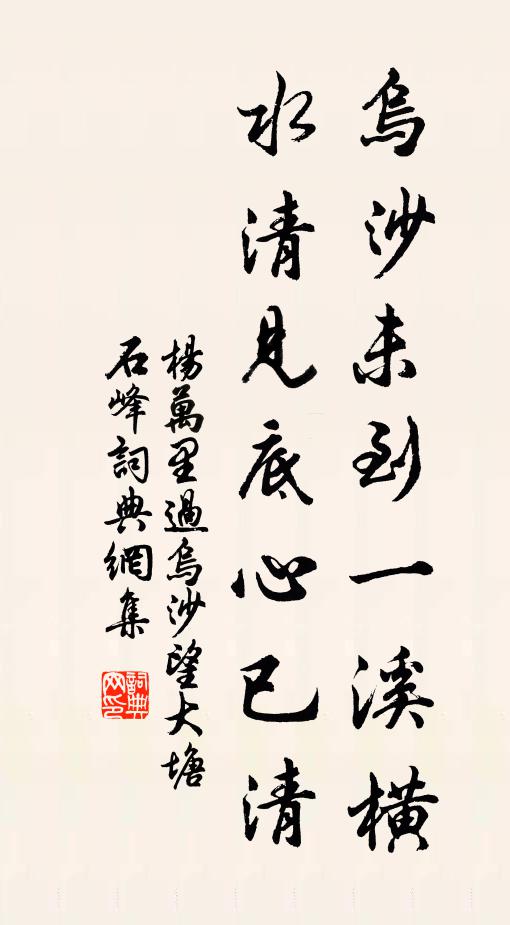 烏沙未到一溪橫
水清見底心已清
楊萬里過烏沙望大塘
石峰詞典網集
詞典
网印